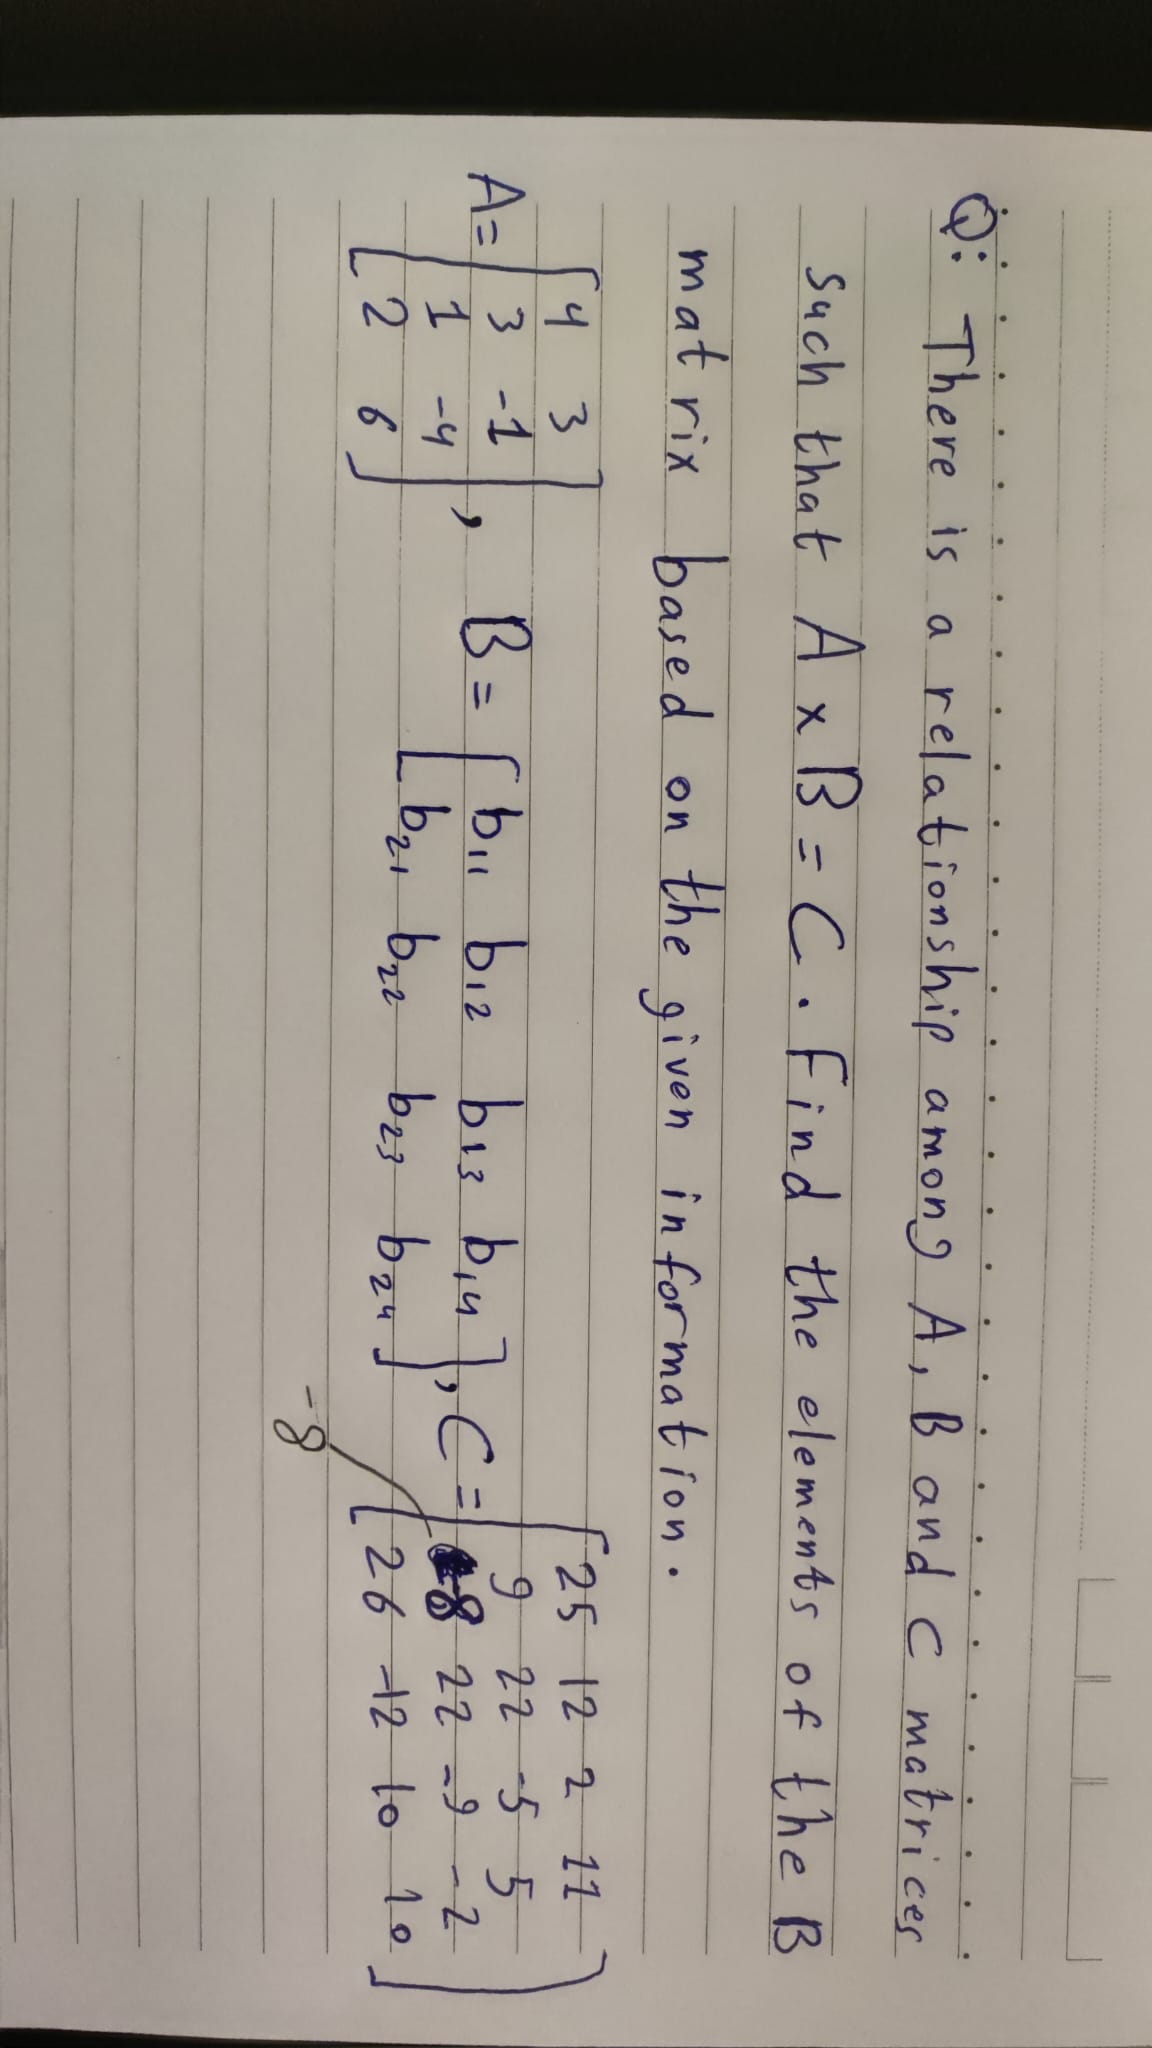 Q: There is a relationship among A, B and C matrices
such that A x B = C. Find the elements of the B
matrix based on the given information.
A = [ 4 3
3 -1
1 -4
2 6 ] , B = [ b11 b12 b13 b14
b21 b22 b23 b24 ] , C = [ 25 12 2 11
9 22 -5 5
-8 22 -9 -2
26 -12 10 10 ]
-8